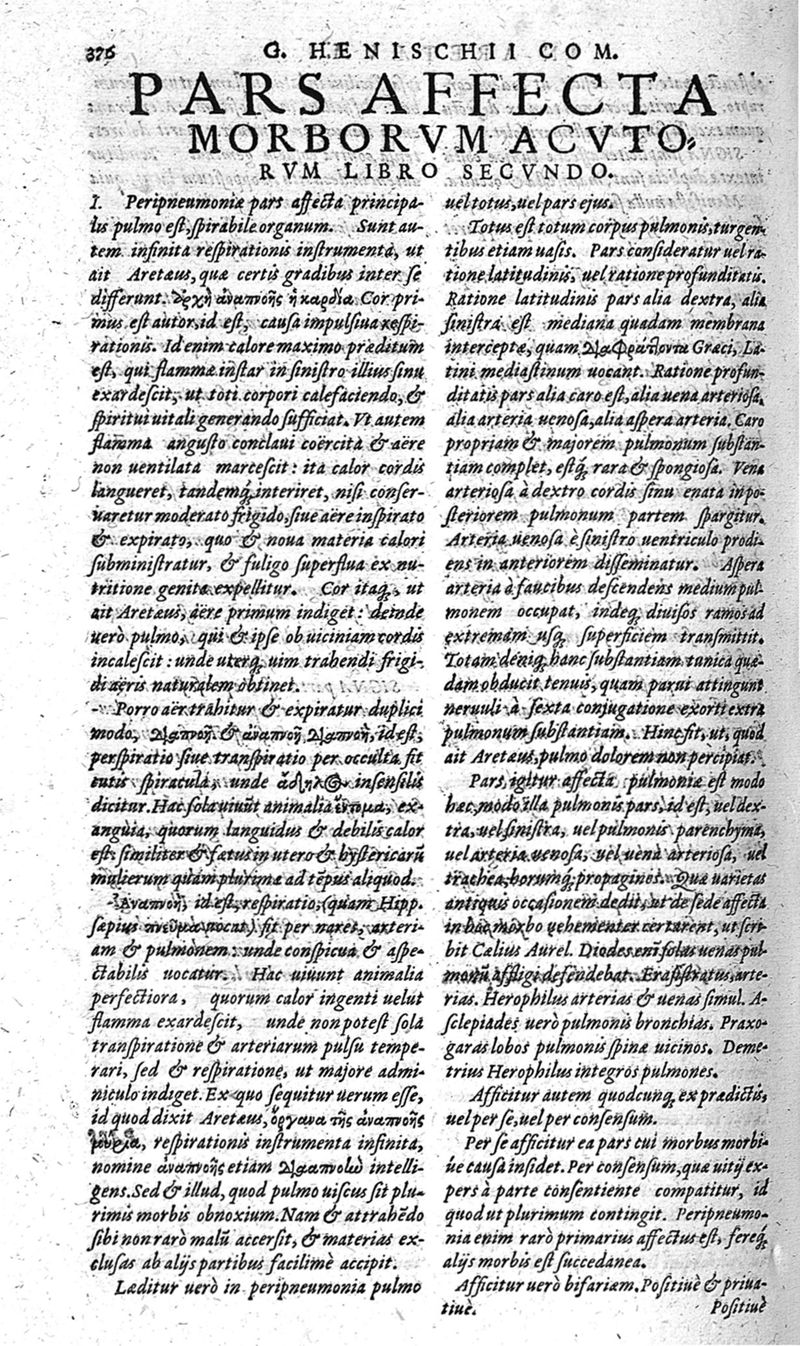 376
G. HENISCHII COM.
PARS AFFECTA
MORBORVM ACVTO-
RVM LIBRO SECVNDO.
I. Peripneumoniæ pars affecta principa-
lis pulmo est, spirabile organum. Sunt au-
tem infinita respirationis instrumenta, ut
ait Aretæus, quæ certis gradibus inter se
differunt. ἀρχὴ ἀναπνοῆς ἡ καρδία. Cor pri-
mus est autor, id est, causa impulsiua respi-
rationis. Id enim calore maximo præditum
est, qui flammæ instar in sinistro illius sinu
exardescit, ut toti corpori calefaciendo, &
spiritui uitali generando sufficiat. Vt autem
flamma angusto conclaui coërcita & aëre
non uentilata marcescit: ita calor cordis
langueret, tandemq́; interiret, nisi conser-
uaretur moderato frigido, siue aëre inspirato
& expirato, quo & noua materia calori
subministratur, & fuligo superflua ex nu-
tritione genita expellitur. Cor itaq;, ut
ait Aretæus, aëre primum indiget: deinde
uerò pulmo, qui & ipse ob uiciniam cordis
incalescit: unde uterq; uim trahendi frigi-
di aëris naturalem obtinet.
Porro aër trahitur & expiratur duplici
modo, διαπνοῇ & ἀναπνοῇ. διαπνοὴ, id est,
perspiratio siue transpiratio per occulta fit
cutis spiracula, unde ἄδηλος insensilis
dicitur. Hac sola uiuũt animalia ἔντομα, ex-
anguia, quorum languidus & debilis calor
est: similiter & fœtus in utero & hystericarũ
mulierum quàm plurimæ ad tẽpus aliquod.
Ἀναπνοὴ, id est, respiratio, (quam Hipp.
sæpius πνεῦμα uocat) fit per nares, arteri-
am & pulmonem: unde conspicua & aspe-
ctabilis uocatur. Hac uiuunt animalia
perfectiora, quorum calor ingenti uelut
flamma exardescit, unde non potest sola
transpiratione & arteriarum pulsu tempe-
rari, sed & respiratione, ut majore admi-
niculo indiget. Ex quo sequitur uerum esse,
id quod dixit Aretæus, ὄργανα τῆς ἀναπνοῆς
μυρία, respirationis instrumenta infinita,
nomine ἀναπνοῆς etiam διαπνοὼ intelli-
gens. Sed & illud, quod pulmo uiscus sit plu-
rimis morbis obnoxium. Nam & attrahẽdo
sibi non rarò malũ accersit, & materias ex-
clusas ab alijs partibus facilimè accipit.
Læditur uerò in peripneumonia pulmo
uel totus, uel pars ejus.
Totus est totum corpus pulmonis, turgen-
tibus etiam uasis. Pars consideratur uel ra-
tione latitudinis, uel ratione profunditatis.
Ratione latitudinis pars alia dextra, alia
sinistra est mediana quadam membrana
interceptæ, quam διαφράττοντα Græci, La-
tini mediastinum uocant. Ratione profun-
ditatis pars alia caro est, alia uena arteriosa,
alia arteria uenosa, alia aspera arteria. Caro
propriam & majorem pulmonum substan-
tiam complet, estq́; rara & spongiosa. Vena
arteriosa à dextro cordis sinu enata in po-
steriorem pulmonum partem spargitur.
Arteria uenosa è sinistro uentriculo prodi-
ens in anteriorem disseminatur. Aspera
arteria à faucibus descendens medium pul-
monem occupat, indeq́; diuisos ramos ad
extremam usq; superficiem transmittit.
Totam deniq; hanc substantiam tunica quæ-
dam obducit tenuis, quam parui attingunt
neruuli à sexta conjugatione exorti extra
pulmonum substantiam. Hinc fit, ut, quod
ait Aretæus, pulmo dolorem non percipiat.
Pars igitur affecta pulmoniæ est modo
hæc, modo illa pulmonis pars, id est, uel dex-
tra, uel sinistra, uel pulmonis parenchyma,
uel arteria uenosa, uel uena arteriosa, uel
trachea, horumq́; propagines. Quæ uarietas
antiquis occasionem dedit, ut de sede affecta
in hoc morbo uehementer certarent, ut scri-
bit Cælius Aurel. Diocles enĩ solas uenas pul-
monũ affligi defendebat. Erasistratus, arte-
rias. Herophilus arterias & uenas simul. A-
sclepiades uerò pulmonis bronchias. Praxo-
garas lobos pulmonis spinæ uicinos. Deme-
trius Herophilus integros pulmones.
Afficitur autem quodcunq; ex prædictis,
uel per se, uel per consensum.
Per se afficitur ea pars cui morbus morbi-
úe causa insidet. Per consensum, quæ uitij ex-
pers à parte consentiente compatitur, id
quod ut plurimum contingit. Peripneumo-
nia enim rarò primarius affectus est, fereq́;
alijs morbis est succedanea.
Afficitur uerò bifariam. Positiuè & priua-
tiuè.
Positiuè